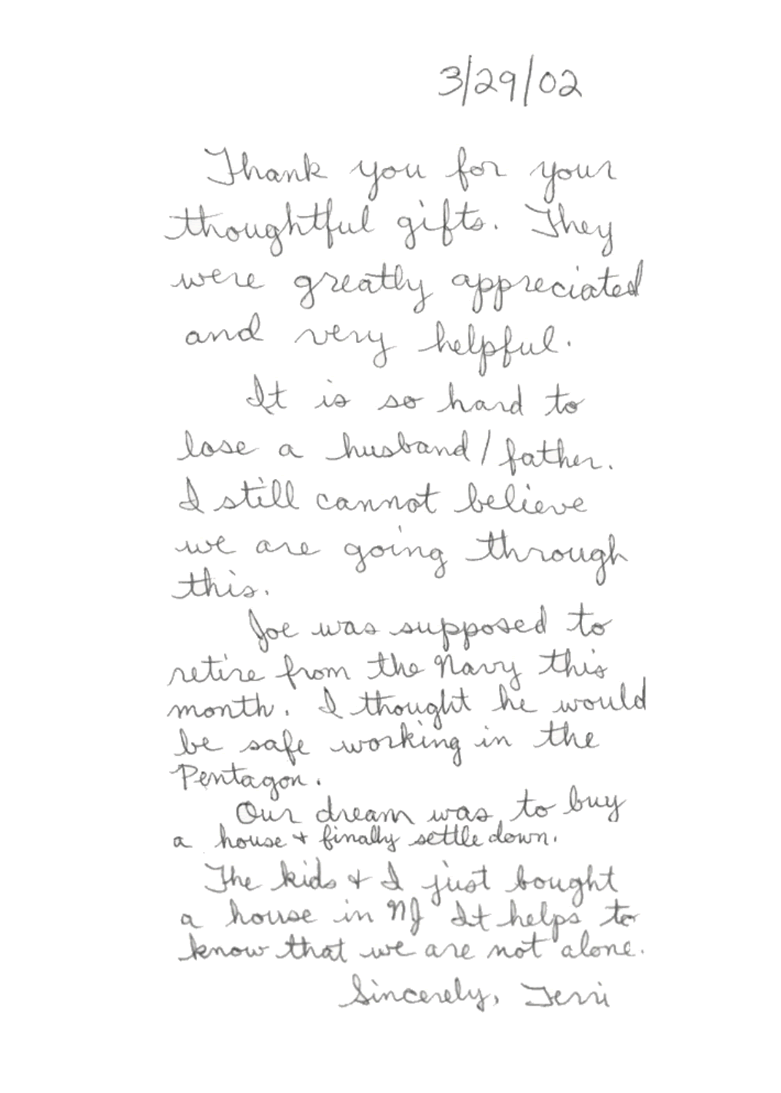 3/29/02
Thank you for your
thoughtful gifts. They
were greatly appreciated
and very helpful.
It is so hard to
lose a husband/father.
I still cannot believe
we are going through
this.
Joe was supposed to
retire from the Navy this
month. I thought he would
be safe working in the
Pentagon.
Our dream was to buy
a house + finally settle down.
The kids + I just bought
a house in NJ It helps to
know that we are not alone.
Sincerely, Terri